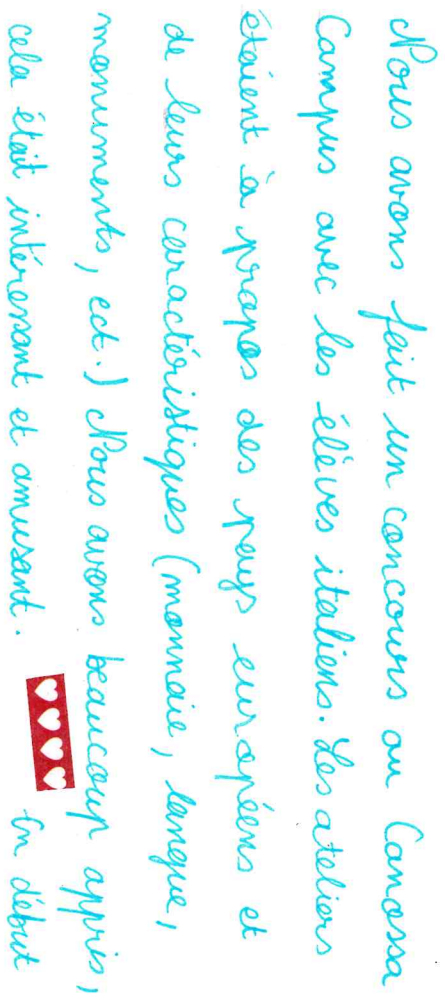 Nous avons fait un concours au Canossa
Campus avec les élèves italiens. Les ateliers
étaient à propos des pays européens et
de leurs caractéristiques (monnaie, langue,
monuments, ect.) Nous avons beaucoup appris,
cela était intéressant et amusant. En début